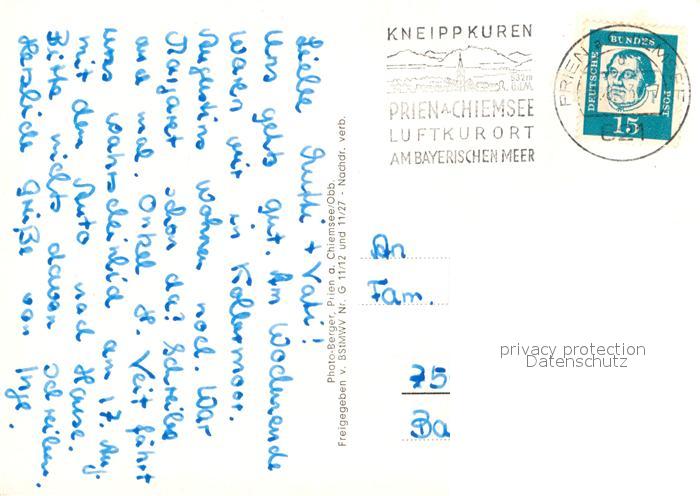 Liebe Mutti + Vati!
Uns gehts gut. Am Wochenende
waren wir in Kolbermoor.
Augustins wohnen noch. War
Margaret schon da? Schreibe
mal. Onkel H. Veit fährt
uns wahrscheinlich am 17. Aug.
mit dem Auto nach Hause.
Bitte nichts davon schreiben.
Herzliche Grüße von Inge.
Photo-Berger, Prien a. Chiemsee/Obb.
Freigegeben v. BStMWV Nr. G 11/12 und 11/27 - Nachdr. verb.
KNEIPPKUREN
532m
ü.d.M.
PRIEN A. CHIEMSEE
LUFTKURORT
AM BAYERISCHEN MEER
DEUTSCHE BUNDESPOST
15
PRIEN
821
An
Fam.
75
Ba
privacy protection
Datenschutz